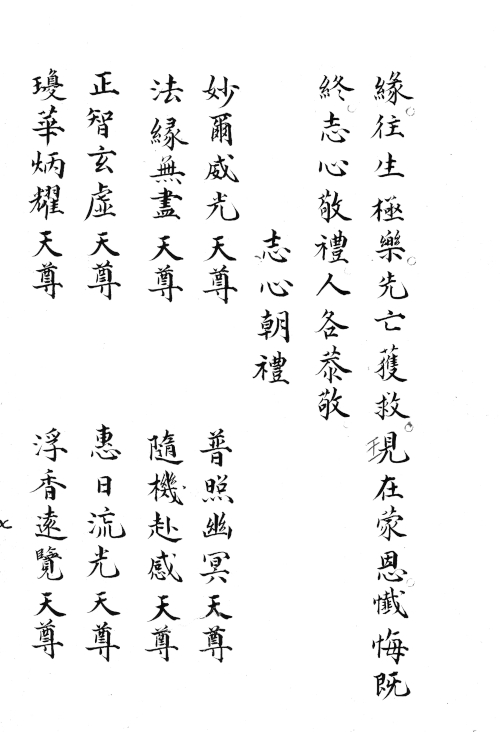 緣。往生極樂。先亡獲救。現在蒙恩。懺悔既
終。志心敬禮人各恭敬
志心朝禮
妙爾威光天尊　普照幽冥天尊
法緣無盡天尊　隨機赴感天尊
正智玄虛天尊　惠日流光天尊
瓊華炳耀天尊　浮香遠覽天尊